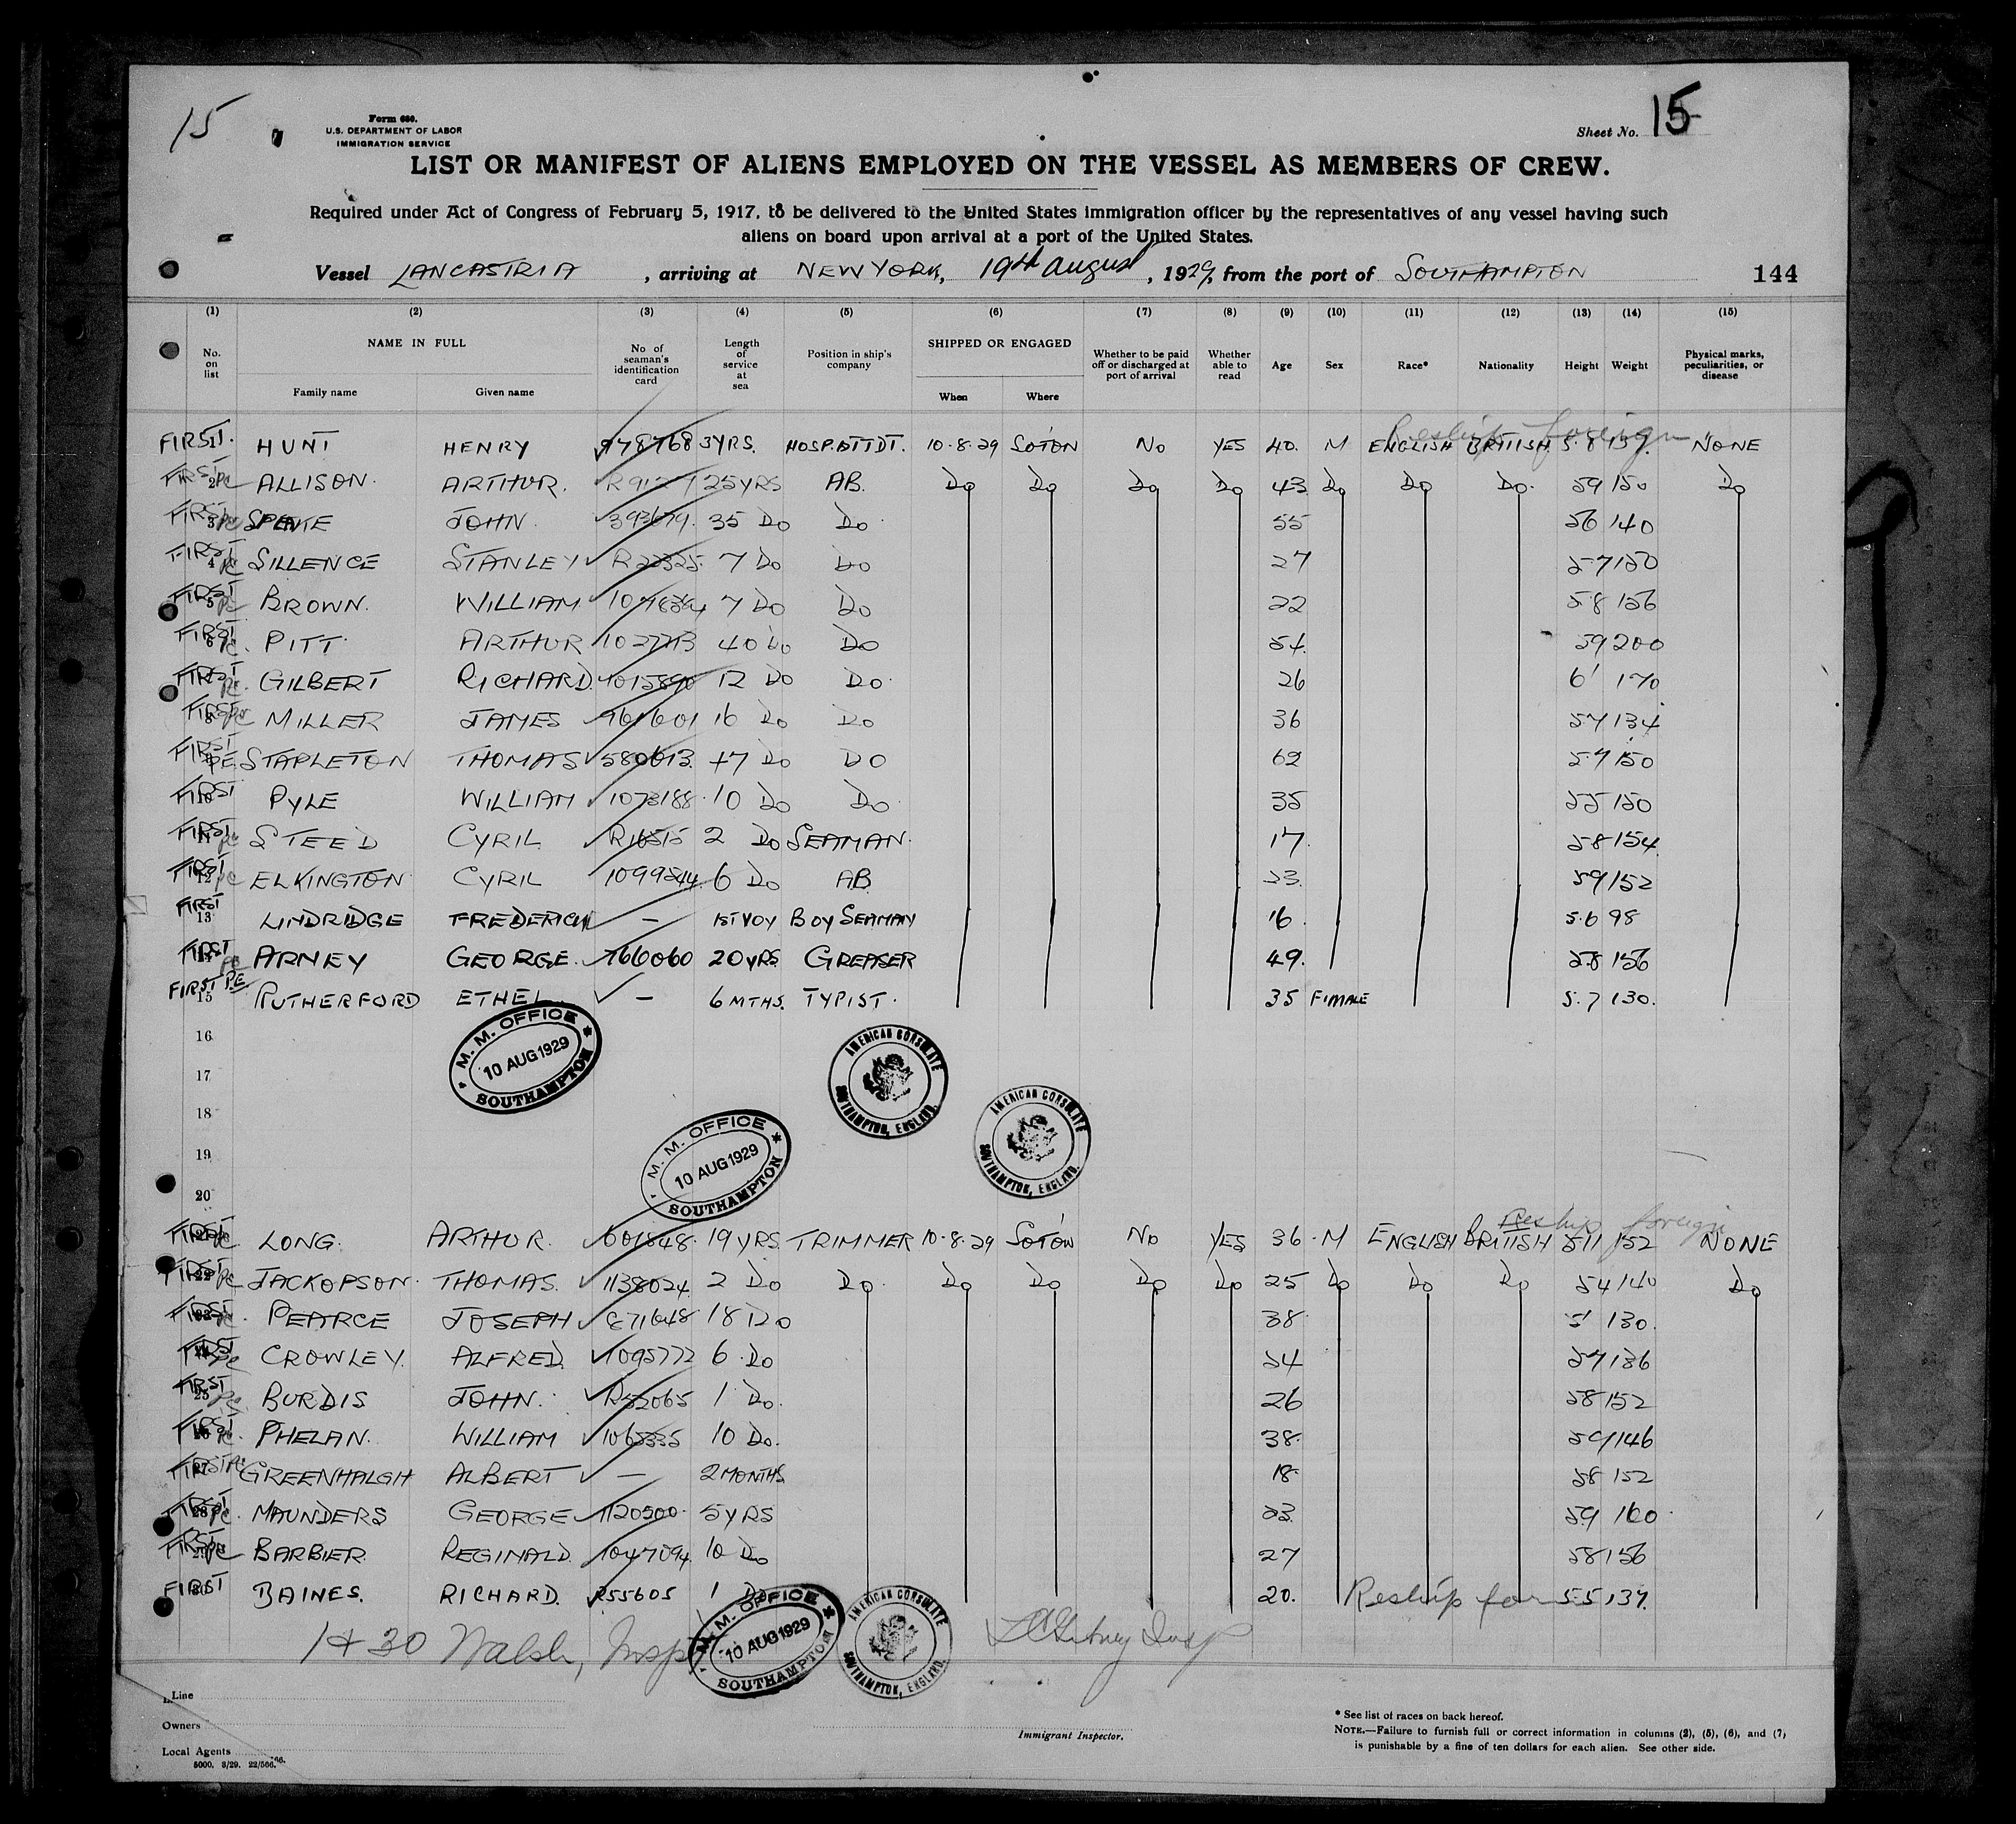 15
Form 680.
U.S. DEPARTMENT OF LABOR
IMMIGRATION SERVICE
Sheet No. 15
LIST OR MANIFEST OF ALIENS EMPLOYED ON THE VESSEL AS MEMBERS OF CREW.
Required under Act of Congress of February 5, 1917, to be delivered to the United States immigration officer by the representatives of any vessel having such
aliens on board upon arrival at a port of the United States.
Vessel LANCASTRIA, arriving at NEW YORK, 19th August, 1929, from the port of SOUTHAMPTON 144
(1) (2) (3) (4) (5) (6) (7) (8) (9) (10) (11) (12) (13) (14) (15)
No. on list NAME IN FULL Family name Given name No of seaman's identification card Length of service at sea Position in ship's company SHIPPED OR ENGAGED When Where Whether to be paid off or discharged at port of arrival Whether able to read Age Sex Race* Nationality Height Weight Physical marks, peculiarities, or disease
Reship foreign
FIRST 1 HUNT HENRY 978768 3YRS. HOSP. ATTDT. 10-8-29 SOTON NO YES 40. M ENGLISH BRITISH 5.8 157. NONE
FIRST 2 PC ALLISON. ARTHUR. 25YRS AB. DO DO DO DO 43 DO DO DO. 59 150 DO
FIRST 3 PC JOHN. 393679. 35 DO DO 55 56 140
FIRST 4 PC SILLENCE STANLEY R22325. 7 DO DO 27 57 150
FIRST 5 PC BROWN. WILLIAM 7 DO DO 22 58 156
FIRST 6 PC. PITT. ARTHUR 1027713 40 DO DO 54. 59 200
FIRST PC. GILBERT RICHARD. 1015890 12 DO DO. 26 6' 170
FIRST 8 PC MILLER JAMES 961601 16 DO DO 36 57 134
FIRST PE. STAPLETON THOMAS 580613. 47 DO DO 62 57 150
FIRST 10 PYLE WILLIAM 1073188. 10 DO DO. 35 55 150
FIRST 11 PC STEED CYRIL R16515 2 DO SEAMAN. 17. 58 154.
FIRST 12 PC ELKINGTON CYRIL 1099244. 6 DO AB. 23. 59 152
FIRST 13 LINDRIDGE FREDERICK — 1ST VOY BOY SEAMAN 16. 5.6 98
FIRST PC ARNEY GEORGE. 766060 20YRS GREASER 49. 5.8 156
FIRST P.E 15 RUTHERFORD ETHEL — 6 MTHS. TYPIST. 35 FIMALE 5.7 130.
M. M. OFFICE 10 AUG 1929 SOUTHAMPTON
AMERICAN CONSULATE SOUTHAMPTON, ENGLAND.
16
17
18
M. M. OFFICE 10 AUG 1929 SOUTHAMPTON
AMERICAN CONSULATE SOUTHAMPTON, ENGLAND.
19
20
Reship foreign
FIRST 21 PC LONG. ARTHUR. 601848. 19 YRS TRIMMER 10-8-29 SOTON NO YES 36. M ENGLISH BRITISH 511 152 NONE
FIRST 22 PC JACKOPSON. THOMAS. 1138024. 2 DO DO. DO DO DO DO 25 DO DO DO 54 140 DO
FIRST 23 PC. PEARCE JOSEPH 871648 18 DO 38. 5' 130.
FIRST 24 PC CROWLEY. ALFRED. 1095772 6 DO 24 57 136
FIRST 25 PC BURDIS JOHN. R52065 1 DO. 26 58 152
FIRST 26 PC. PHELAN. WILLIAM 1065335 10 DO. 38. 59 146
FIRST 27 PC GREENHALGH ALBERT — 2 MONTHS 18. 58 152
FIRST 28 PC. MAUNDERS GEORGE 1120500. 5YRS 23. 59 160.
FIRST 29 PC BARBIER REGINALD. 1047094. 10 DO 27 58 156
FIRST 30 BAINES. RICHARD. R55605 1 DO 20. Reship for 5.5 137.
1 & 30 Walsh, Insp
M. M. OFFICE 10 AUG 1929 SOUTHAMPTON
AMERICAN CONSULATE SOUTHAMPTON, ENGLAND.
Line
Owners
Local Agents
5000. 3/29. 22/566.
Immigrant Inspector.
* See list of races on back hereof.
NOTE.—Failure to furnish full or correct information in columns (2), (5), (6), and (7),
is punishable by a fine of ten dollars for each alien. See other side.